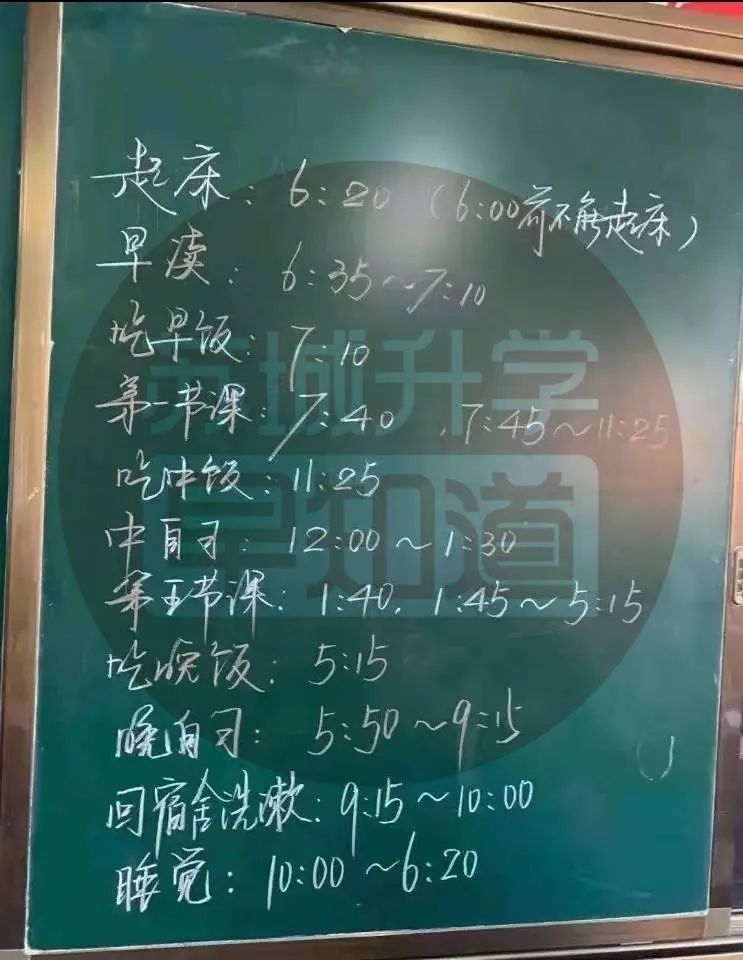 起床：6:20（6:00前不能起床）
早读：6:35～7:10
吃早饭：7:10
第一节课：7:40，7:45～11:25
吃中饭：11:25
中自习：12:00～1:30
第五节课：1:40，1:45～5:15
吃晚饭：5:15
晚自习：5:50～9:15
回宿舍洗漱：9:15～10:00
睡觉：10:00～6:20
苏城升学
早知道